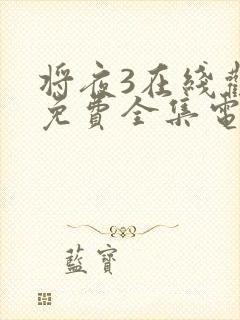 将夜3在线觀
免費全集電
藍寶